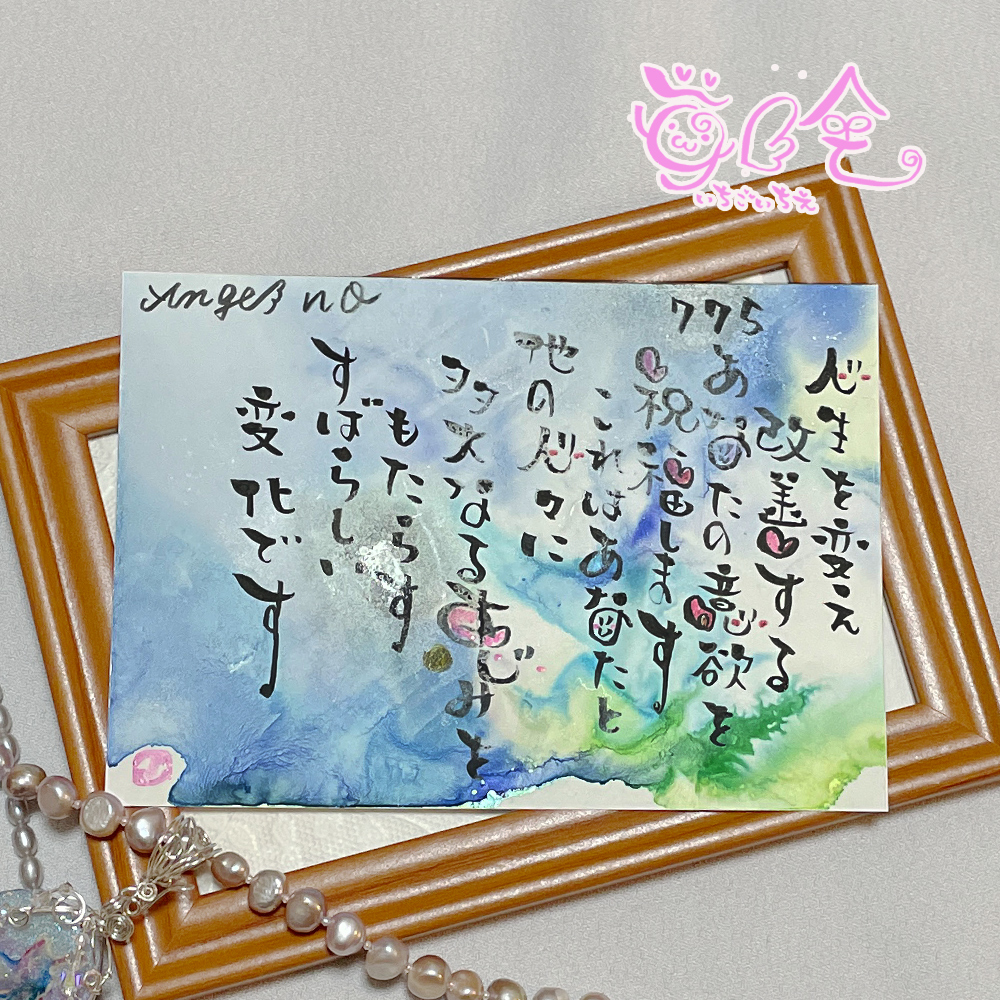 いちごいちえ
Angel no
775
人生を変え
改善する
あなたの意欲を
祝福します
これはあなたと
他の人々に
多大なるめぐみを
もたらす
すばらしい
変化です